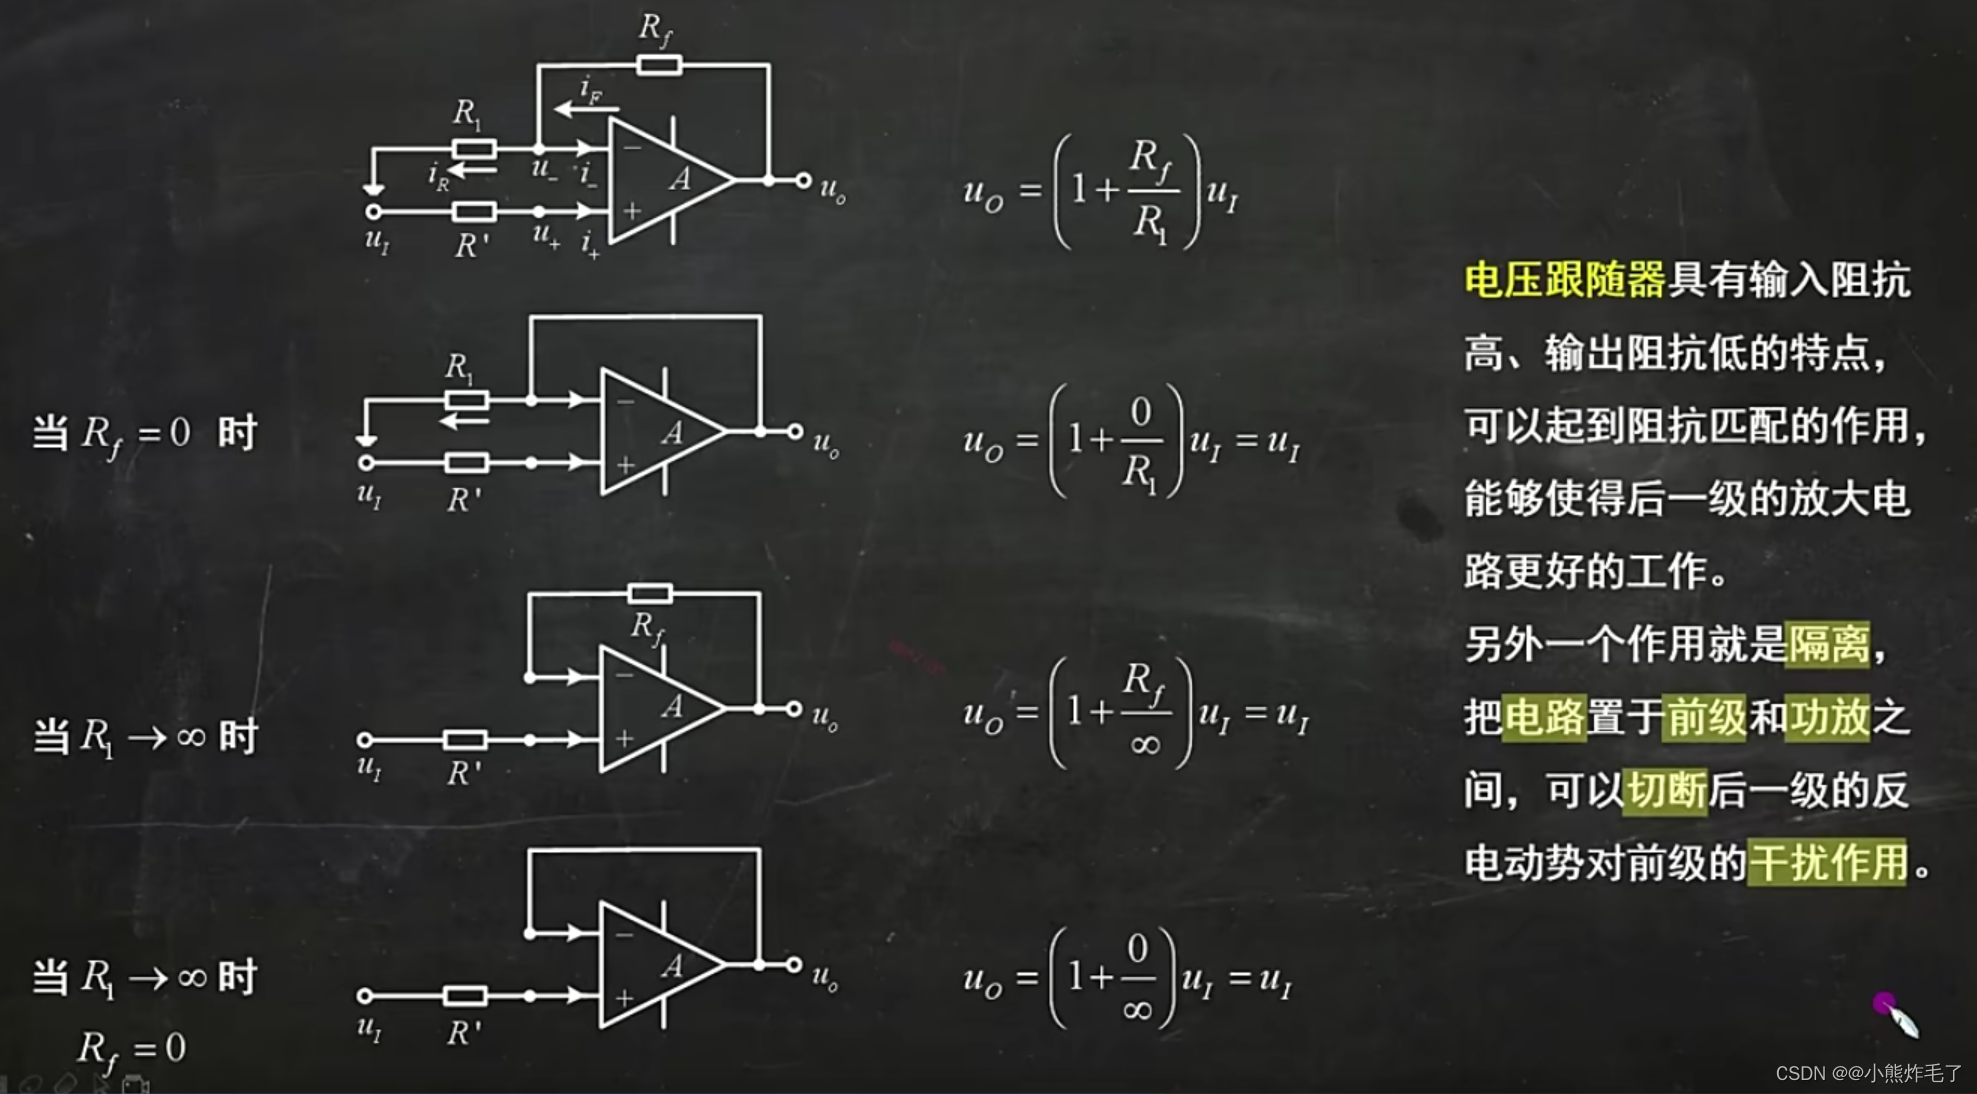 R_f
i_F
R_1
i_R
u_-
i_-
−
A
+
u_o
u_I
R'
u_+
i_+
u_O = (1 + R_f / R_1) u_I
当 R_f = 0 时
R_1
−
A
+
u_o
u_I
R'
u_O = (1 + 0 / R_1) u_I = u_I
当 R_1 → ∞ 时
R_f
−
A
+
u_o
u_I
R'
u_O = (1 + R_f / ∞) u_I = u_I
当 R_1 → ∞ 时
R_f = 0
−
A
+
u_o
u_I
R'
u_O = (1 + 0 / ∞) u_I = u_I
电压跟随器具有输入阻抗
高、输出阻抗低的特点，
可以起到阻抗匹配的作用，
能够使得后一级的放大电
路更好的工作。
另外一个作用就是隔离，
把电路置于前级和功放之
间，可以切断后一级的反
电动势对前级的干扰作用。
CSDN @@小熊炸毛了